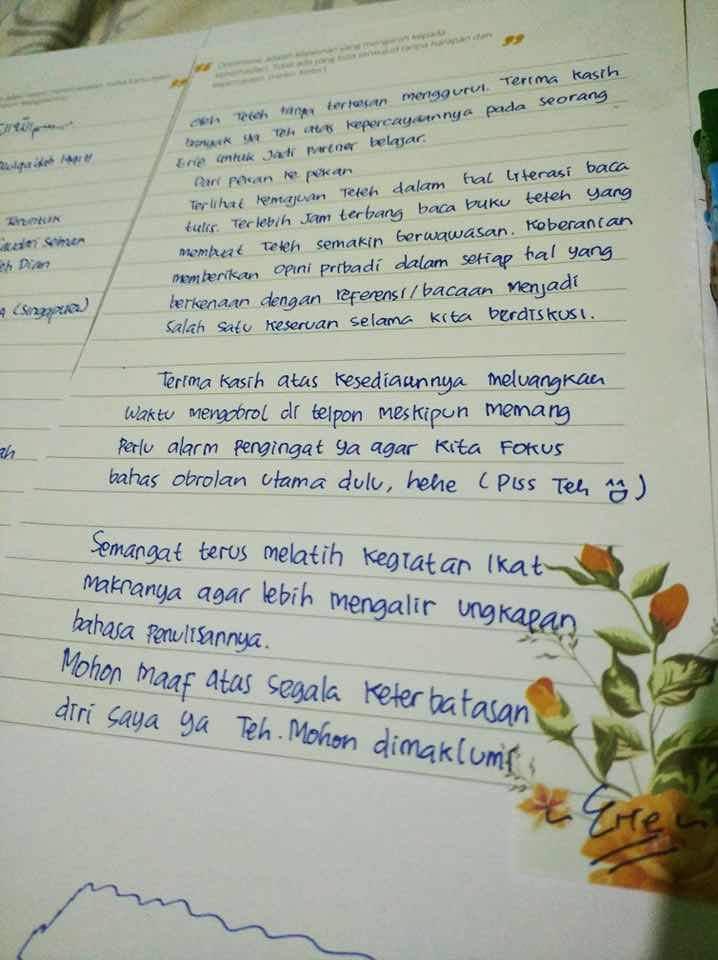 Optimisme adalah keyakinan yang mengarah kepada
oleh Teteh tanpa terkesan menggurui. Terima kasih
banyak ya Teh atas kepercayaannya pada seorang
Erie untuk Jadi Partner belajar.
Dari pekan ke pekan
Terlihat kemajuan Teteh dalam hal literasi baca
tulis. Terlebih Jam terbang baca buku teteh yang
membuat Teteh semakin berwawasan. Keberanian
memberikan opini pribadi dalam setiap hal yang
berkenaan dengan referensi/bacaan menjadi
Salah satu keseruan selama kita berdiskusi.
Terima kasih atas kesediaannya meluangkan
waktu mengobrol di telpon meskipun memang
perlu alarm pengingat ya agar kita FOKUS
bahas obrolan utama dulu, hehe (Piss Teh ^^)
Semangat terus melatih kegiatan Ikat
maknanya agar lebih mengalir ungkapan
bahasa penulisannya.
Mohon maaf atas segala keterbatasan
diri saya ya Teh. Mohon dimaklumi
Erie
Teruntuk
eh Dian
A (Singapura)
ah